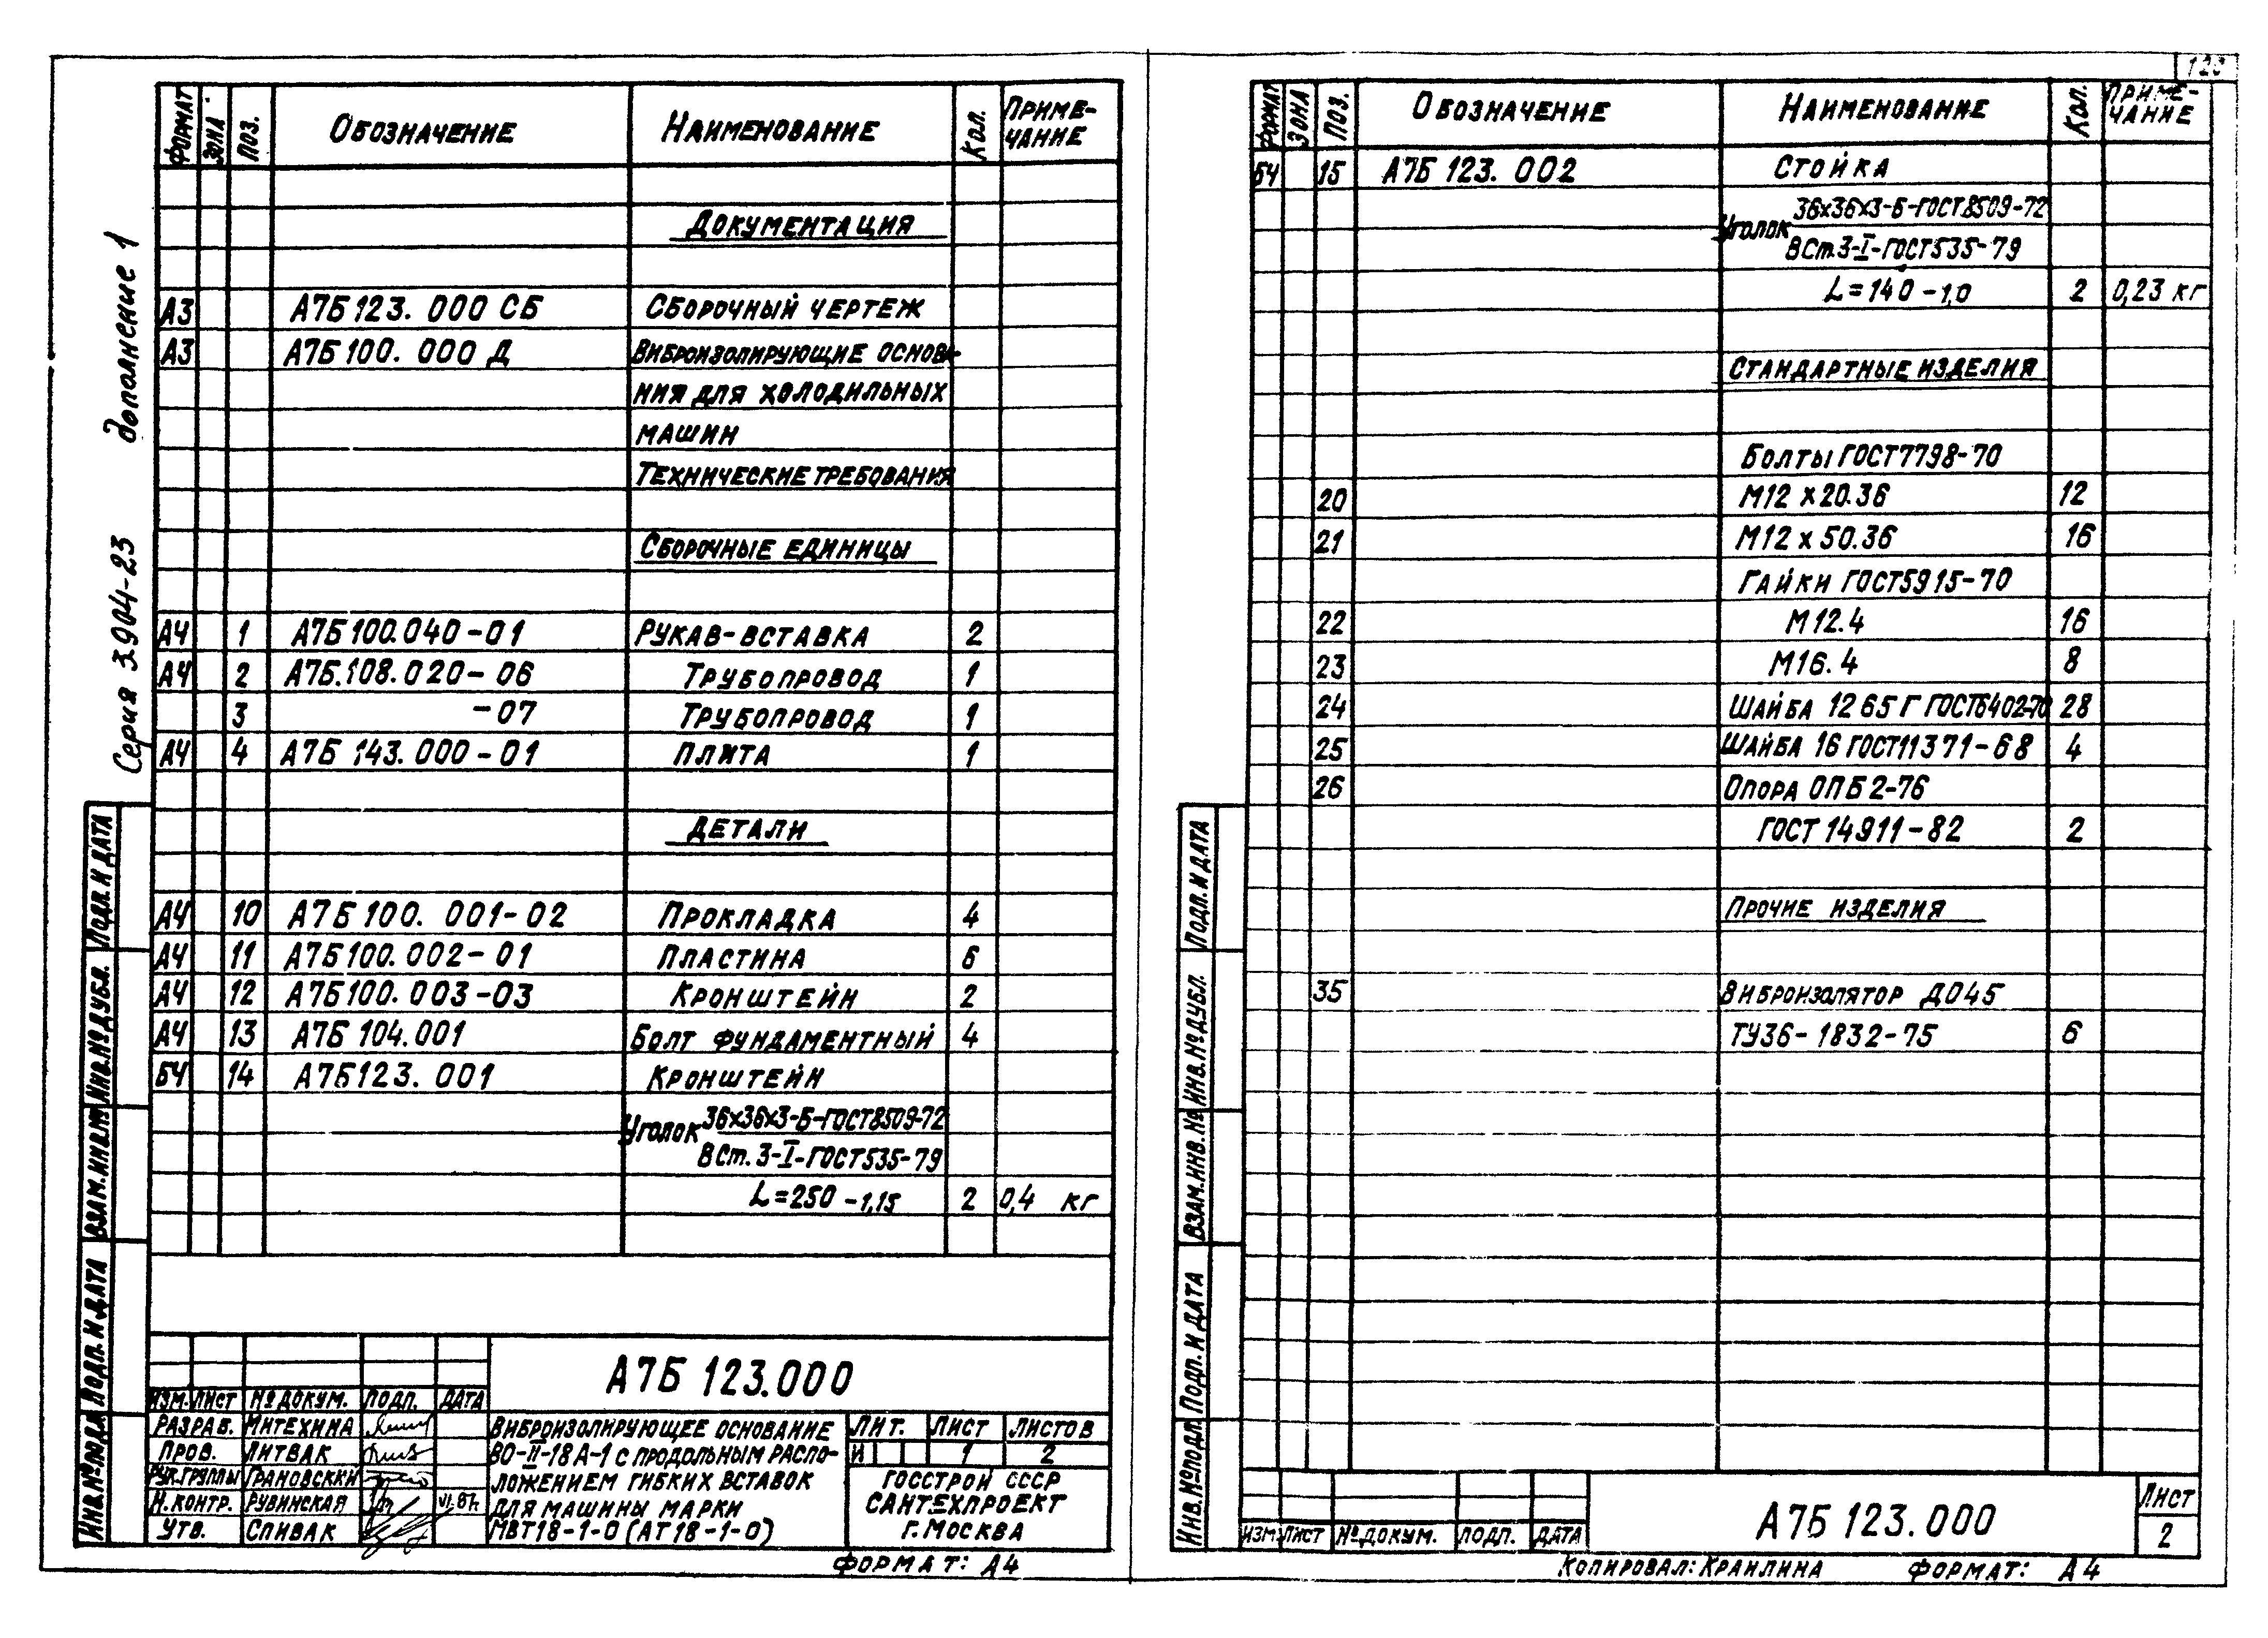 Серия 3.904-23 дополнение 1
ФОРМАТ ЗОНА ПОЗ. ОБОЗНАЧЕНИЕ НАИМЕНОВАНИЕ КОЛ. ПРИМЕ-
ЧАНИЕ
ДОКУМЕНТАЦИЯ
А3 А7Б 123. 000 СБ СБОРОЧНЫЙ ЧЕРТЕЖ
А3 А7Б 100. 000 Д ВИБРОИЗОЛИРУЮЩИЕ ОСНОВА-
НИЯ ДЛЯ ХОЛОДИЛЬНЫХ
МАШИН
ТЕХНИЧЕСКИЕ ТРЕБОВАНИЯ
СБОРОЧНЫЕ ЕДИНИЦЫ
А4 1 А7Б 100.040-01 РУКАВ-ВСТАВКА 2
А4 2 А7Б.108.020-06 ТРУБОПРОВОД 1
3 -07 ТРУБОПРОВОД 1
А4 4 А7Б 143.000-01 ПЛИТА 1
ДЕТАЛИ
А4 10 А7Б 100. 001-02 ПРОКЛАДКА 4
А4 11 А7Б 100. 002-01 ПЛАСТИНА 6
А4 12 А7Б 100. 003-03 КРОНШТЕЙН 2
А4 13 А7Б 104.001 БОЛТ ФУНДАМЕНТНЫЙ 4
БЧ 14 А7Б 123. 001 КРОНШТЕЙН
УГОЛОК 36х36х3-Б-ГОСТ8509-72
ВСт.3-I-ГОСТ535-79
L=250 -1,15 2 0,4 кг
ИНВ.№ПОДЛ. ПОДП. И ДАТА ВЗАМ.ИНВ.№ ИНВ.№ДУБЛ. ПОДП. И ДАТА
А7Б 123.000
ИЗМ. ЛИСТ № ДОКУМ. ПОДП. ДАТА
РАЗРАБ. МИТЕХИНА
ПРОВ. ЛИТВАК
РУК.ГРУППЫ ГРАНОВСКИЙ
Н.КОНТР. РУВИНСКАЯ VI.87г.
УТВ. СПИВАК
ВИБРОИЗОЛИРУЮЩЕЕ ОСНОВАНИЕ
ВО-II-18А-1 С ПРОДОЛЬНЫМ РАСПО-
ЛОЖЕНИЕМ ГИБКИХ ВСТАВОК
ДЛЯ МАШИНЫ МАРКИ
МВТ18-1-0 (АТ18-1-0)
ЛИТ. ЛИСТ ЛИСТОВ
И 1 2
ГОССТРОЙ СССР
САНТЕХПРОЕКТ
Г.МОСКВА
ФОРМАТ: А4
123
ФОРМАТ ЗОНА ПОЗ. ОБОЗНАЧЕНИЕ НАИМЕНОВАНИЕ КОЛ. ПРИМЕ-
ЧАНИЕ
БЧ 15 А7Б 123. 002 СТОЙКА
УГОЛОК 36х36х3-Б-ГОСТ8509-72
ВСт.3-I-ГОСТ535-79
L=140 -1,0 2 0,23 кг
СТАНДАРТНЫЕ ИЗДЕЛИЯ
БОЛТЫ ГОСТ7798-70
20 М12 х 20.36 12
21 М12 х 50.36 16
ГАЙКИ ГОСТ5915-70
22 М12.4 16
23 М16.4 8
24 ШАЙБА 12 65Г ГОСТ6402-70 28
25 ШАЙБА 16 ГОСТ11371-68 4
26 ОПОРА ОПБ2-76
ГОСТ 14911-82 2
ПРОЧИЕ ИЗДЕЛИЯ
35 ВИБРОИЗОЛЯТОР ДО45
ТУ36-1832-75 6
ИНВ.№ПОДЛ. ПОДП. И ДАТА ВЗАМ.ИНВ.№ ИНВ.№ДУБЛ. ПОДП. И ДАТА
ИЗМ. ЛИСТ № ДОКУМ. ПОДП. ДАТА
А7Б 123.000
ЛИСТ
2
КОПИРОВАЛ: КРАИЛИНА ФОРМАТ: А4